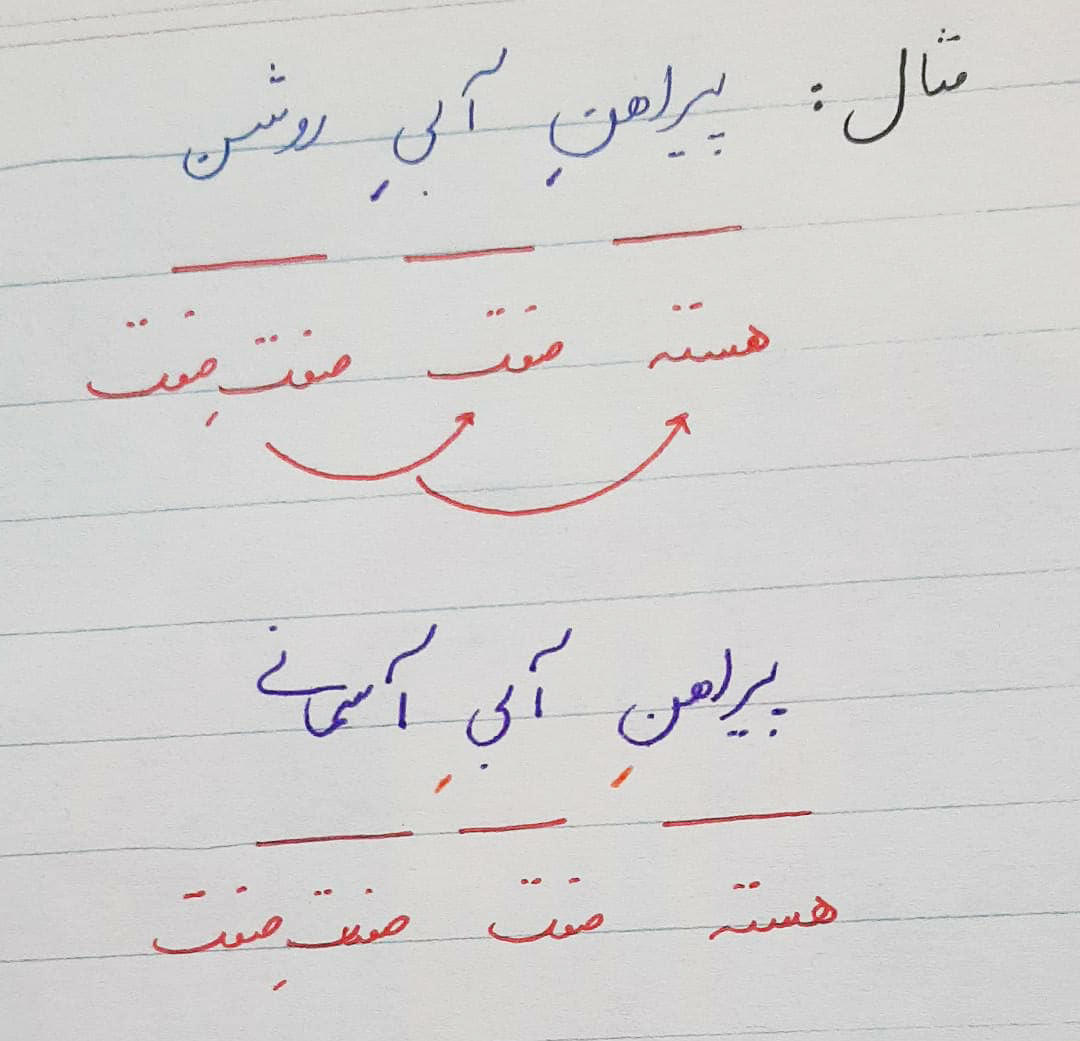 مثال : پیراهنِ آبیِ روشن
هسته صفت صفتِ صفت
پیراهنِ آبیِ آسمانی
هسته صفت صفتِ صفت